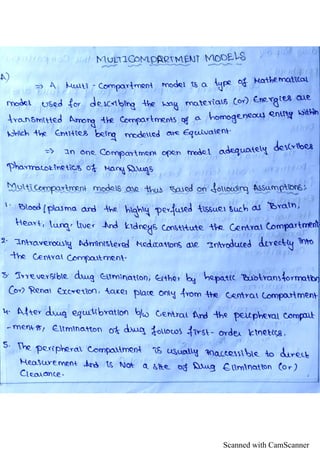 MULTICOMPARTMENT MODELS
A)
=> A Multi-Compartment model is a type of Mathematical
model used for describing the way materials (or) Energies are
transmitted Among the Compartments of a homogeneous entity within
which the Entities being modelled are Equivalent.
=> In one Compartment open model adequately describes
pharmacokinetics of Many Drugs
Multicompartment models are thus Based on following Assumptions:
1. Blood/plasma and the highly perfused tissues such as Brain,
Heart, lung, liver And kidneys Constitute the Central Compartment
2. Intravenously Administered Medications are Introduced directly into
the Central Compartment.
3. Irreversible drug Elimination, Either by hepatic Biotransformation
(or) Renal Excretion, takes place only from the Central Compartment
4. After drug equilibration b/w Central And the peripheral Compart
-ments, Elimination of drug follows first-order kinetics.
5. The peripheral Compartment is usually inaccessible to direct
Measurement And is Not a site of Drug Elimination (or)
Clearance.
Scanned with CamScanner